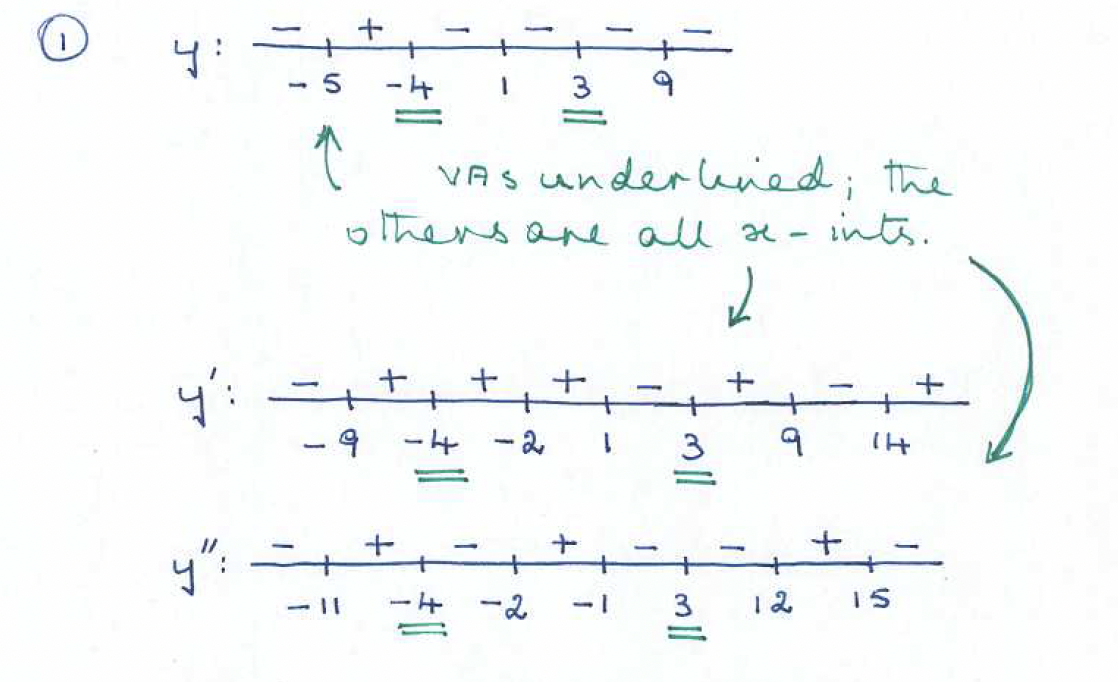 ①
y: − + − − − −
−5 −4 1 3 9
VAs underlined; the
others are all x-ints.
y': − + + + − + − +
−9 −4 −2 1 3 9 14
y'': − + − + − − + −
−11 −4 −2 −1 3 12 15